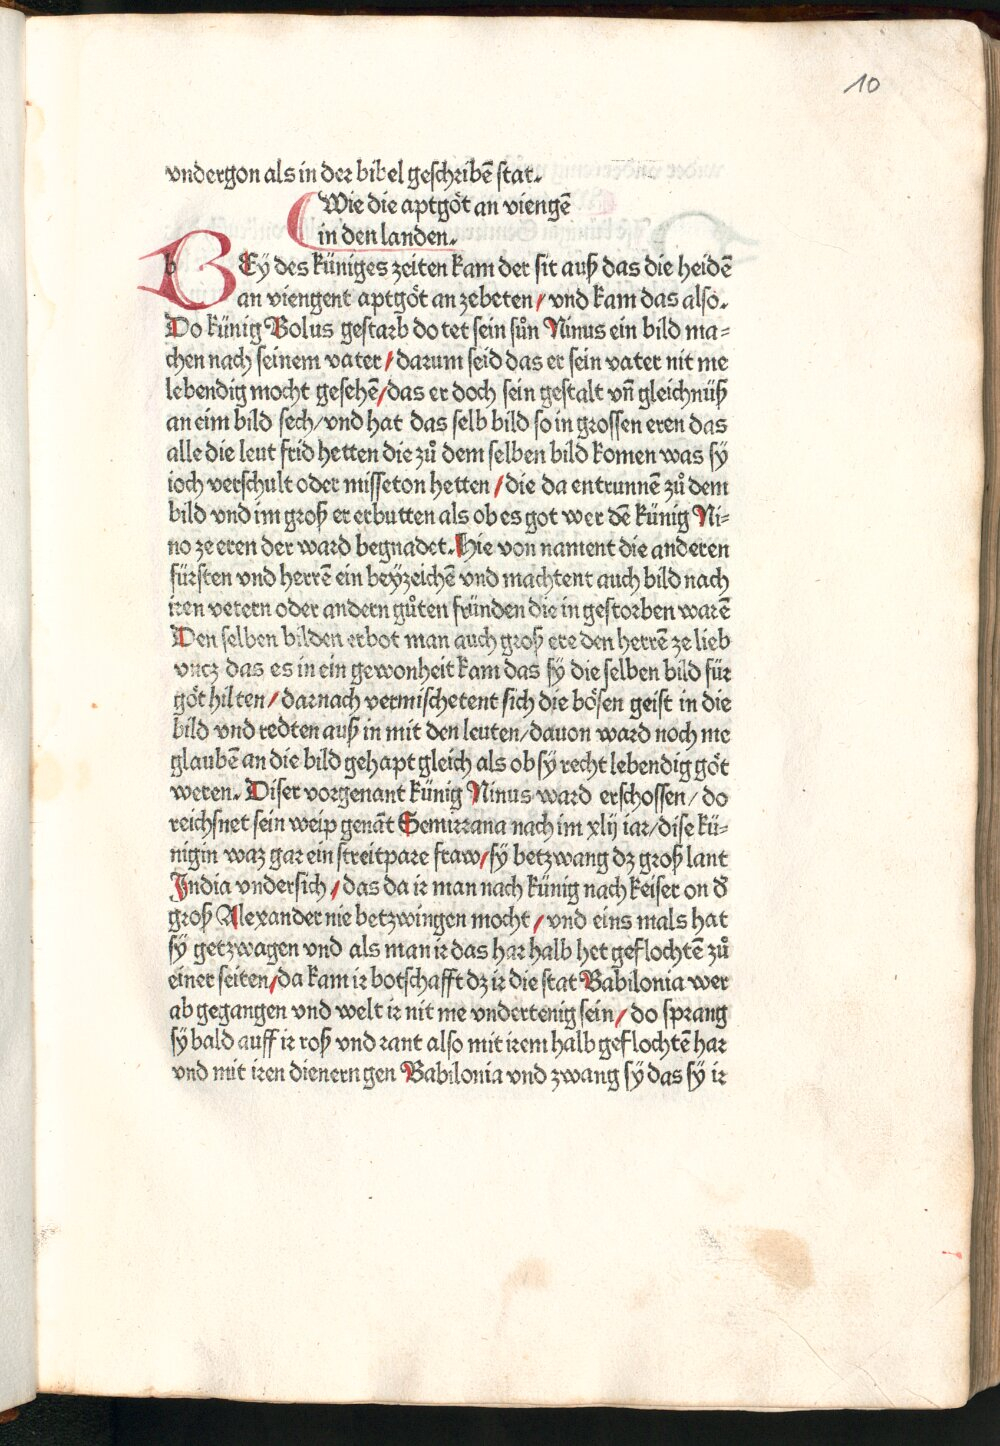 10
vndergon als in der bibel geschribē stat.
Wie die aptgöt an viengē
in den landen.
BEÿ des küniges zeiten kam der sit auß das die heidē
an viengent aptgöt an zebeten / vnd kam das also.
Do künig Bolus gestarb do tet sein sůn Ninus ein bild ma⸗
chen nach seinem vater / darum seid das er sein vater nit me
lebendig mocht gesehē / das er doch sein gestalt vn̄ gleichnüß
an eim bild sech / vnd hat das selb bild so in grossen eren das
alle die leut frid hetten die zů dem selben bild komen was sÿ
ioch verschult oder misseton hetten / die da entrunnē zů dem
bild vnd im groß er erbutten als ob es got wer dē künig Ni⸗
no ze eren der ward begnadet. Hie von nament die anderen
fürsten vnd herrē ein beÿzeichē vnd machtent auch bild nach
iren vetern oder andern gůten fründen die in gestorben warē
Den selben bilden erbot man auch groß ere den herrē ze lieb
vncz das es in ein gewonheit kam das sÿ die selben bild für
göt hilten / darnach vermischetent sich die bösen geist in die
bild vnd redten auß in mit den leuten / dauon ward noch me
glaubē an die bild gehapt gleich als ob sÿ recht lebendig göt
weren. Diser vorgenant künig Ninus ward erschossen / do
reichsnet sein weip genāt Semirrana nach im xlij iar / dise kü⸗
nigin waz gar ein streitpare fraw / sÿ betzwang dz groß lant
India vndersich / das da ir man nach künig nach keiser on d̄
groß Alexander nie betzwingen mocht / vnd eins mals hat
sÿ getzwagen vnd als man ir das har halb het geflochtē zů
einer seiten / da kam ir botschafft dz ir die stat Babilonia wer
ab gegangen vnd welt ir nit me vndertenig sein / do sprang
sÿ bald auff ir roß vnd rant also mit irem halb geflochtē har
vnd mit iren dienern gen Babilonia vnd zwang sÿ das sÿ ir